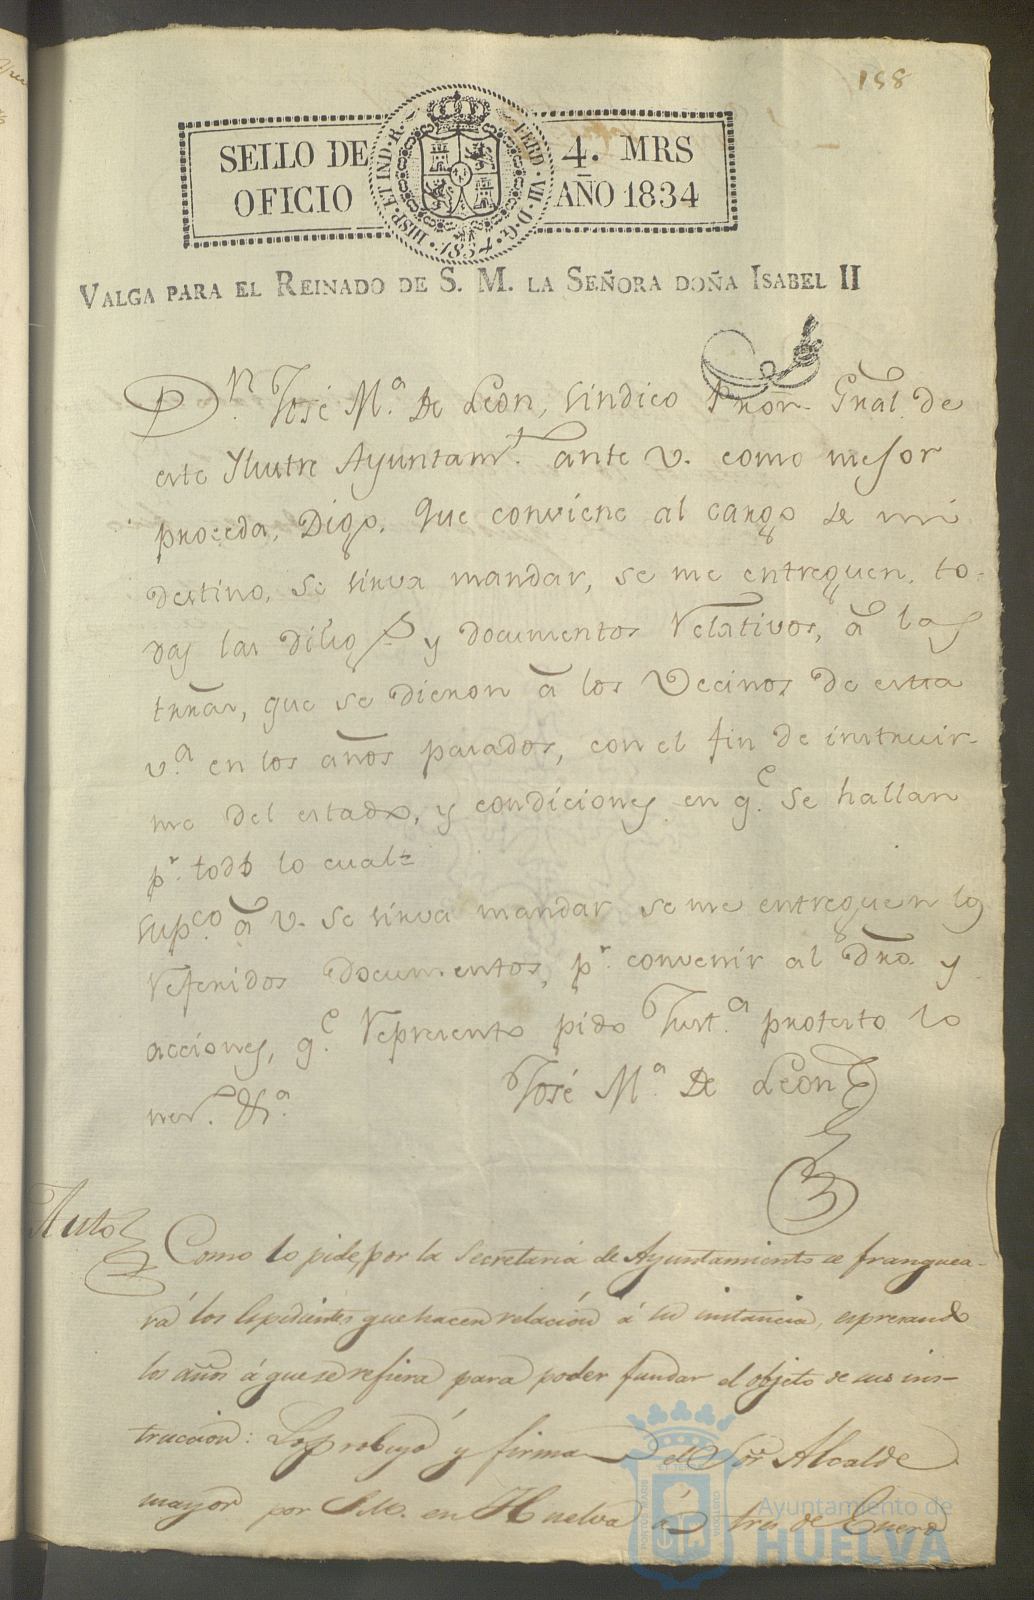 158
SELLO DE 4. MRS
OFICIO AÑO 1834
HISP. ET IND. R. FERD. VII. D. G. 1834
VALGA PARA EL REINADO DE S. M. LA SEÑORA DOÑA ISABEL II
Dn. José Ma. De Leon, sindico Pror. Gnal. de
este Ylustre Ayuntamto. ante v. como mejor
proceda, Digo, Que conviene al cargo de mi
destino, se sirva mandar, se me entreguen, to-
das las dilig.s y documentos relativos, á las
trras, que se dieron á los vecinos de esta
v.a en los años pasados, con el fin de instruir-
me del estado, y condiciones en q.e se hallan
p.r todo lo cual=
Supco. á v. se sirva mandar se me entreguen los
referidos documentos, p.r convenir al dro. y
acciones, q.e represento pido Just.a protesto lo
nes.o &.a José M.a De Leon
Auto
Como lo pide, por la Secretaria de Ayuntamiento se franquea-
rá los Espedientes que hacen relacion á su instancia, espresando
los años á que se refiera para poder fundar el objeto de sus ins-
truccion: Lo probeyó y firma el Sor. Alcalde
mayor por S.M. en Huelva á tres de Enero
Ayuntamiento de
HUELVA